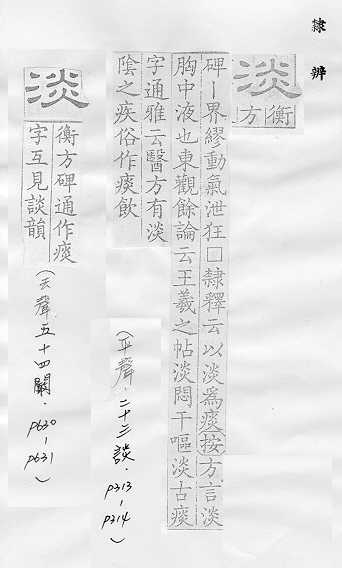 隸辨
淡
衡方
碑丨界繆動氣泄狂□隸釋云以淡為痰按方言淡
胸中液也東觀餘論云王羲之帖淡悶干嘔淡古痰
字通雅云醫方有淡
陰之疾俗作痰飲
(平聲.二十三談.p313-p314)
淡
衡方碑通作痰
字互見談韻
(去聲五十四闞.p630-p631)